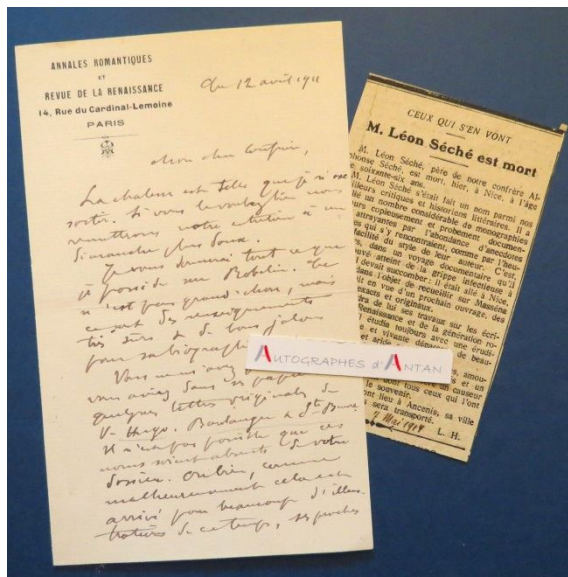 ANNALES ROMANTIQUES
ET
REVUE DE LA RENAISSANCE
14, Rue du Cardinal-Lemoine
PARIS
du 12 avril 1911
Mon cher confrère,
La chaleur est telle que je n'ose
sortir. Si vous le voulez bien nous
remettrons notre entretien à un
dimanche plus doux.
Je vous donnerai tout ce que
je possède sur Robelin. Ce
n'est pas grand'chose, mais
ce sont des renseignements
très sûrs & de bons jalons
pour sa biographie
Vous
vous aviez dans ses papiers
quelques lettres originales de
V. Hugo. Boulanger & Ste-Beuve.
Il n'est pas possible que ces
noms soient absents de votre
dossier. Ou bien, comme
malheureusement cela est
arrivé pour beaucoup d'illus-
trations de ce temps, ses proches
AUTOGRAPHES d'ANTAN
CEUX QUI S'EN VONT
M. Léon Séché est mort
M. Léon Séché, père de notre confrère Al-
phonse Séché, est mort, hier, à Nice, à l'âge
de soixante-six ans.
M. Léon Séché s'était fait un nom parmi nos
meilleurs critiques et historiens littéraires. Il
un nombre considérable de monographies
copieusement et probement documen-
attrayantes par l'abondance d'anecdotes
qui s'y rencontraient, comme par l'heu-
facilité du style de leur auteur. C'est
dans un voyage documentaire qu'il
atteint de la grippe infectieuse à
devait succomber. Il était allé à Nice,
dans l'objet de recueillir sur Masséna
en vue d'un prochain ouvrage, des
et originaux.
de lui ses travaux sur les écri-
Renaissance et de la génération ro-
étudia toujours avec une érudi-
et vivante
de beau-
amou-
et un
causeur
dont tous ceux qui l'ont
le souvenir.
ont lieu à Ancenis, sa ville
sera transporté.
L. H.
7 Mai 1914